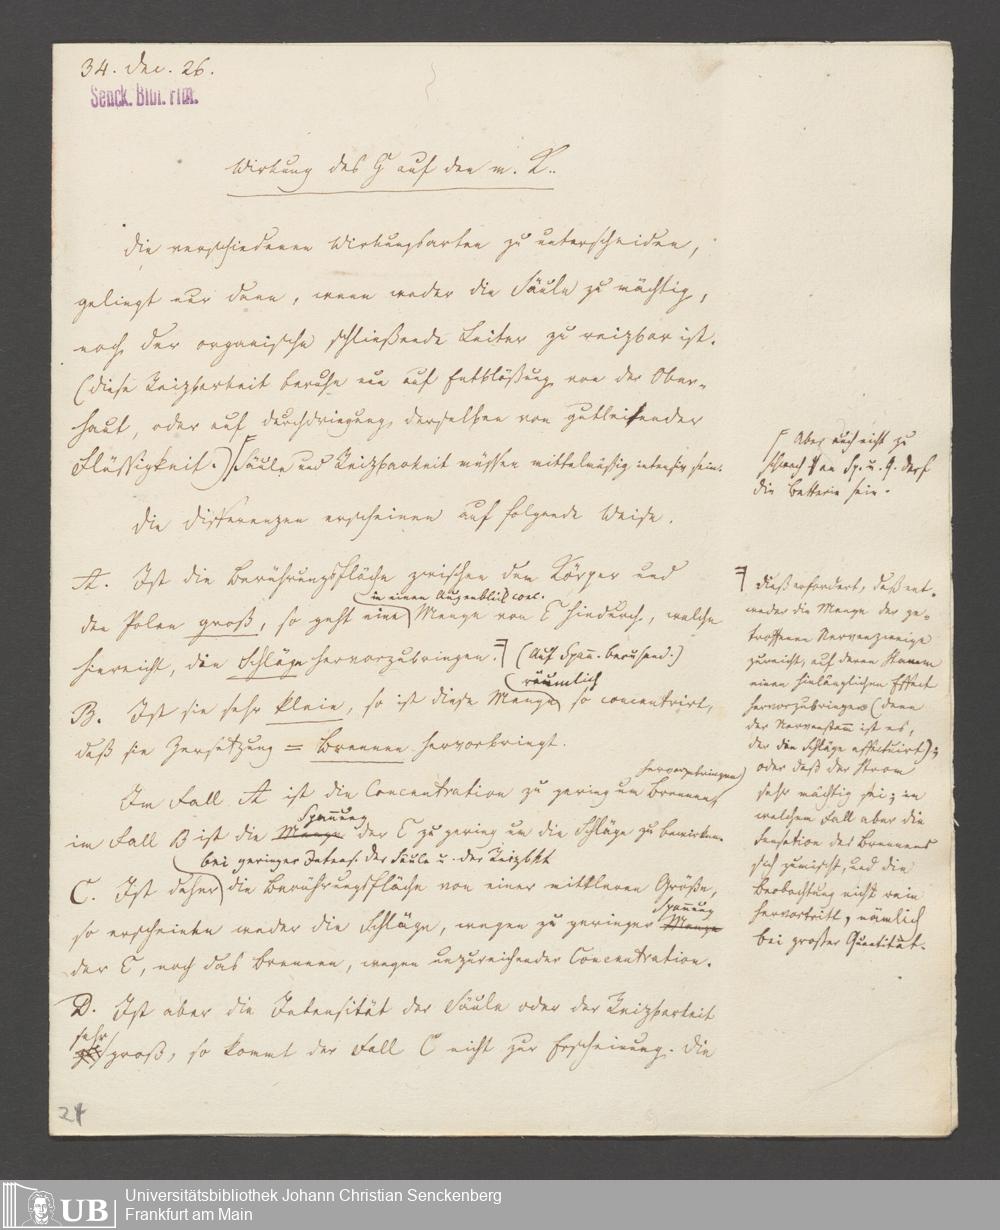 34. Dec. 26.
Senck. Bibl. Ffm.
Wirkung des G auf den m. K..
Die verschiedenen Wirkungsarten zu unterscheiden,
gelingt nur dann, wenn weder die Säule zu mächtig,
noch der organische schließende Leiter zu reizbar ist.
(Diese Reizbarkeit beruhe nun auf Entblößung von der Ober-
haut, oder auf Durchdringung derselben von gutleitender
Flüssigkeit.) Säule und Reizbarkeit müssen mittelmäßig intensiv sein.
Die Differenzen erscheinen auf folgende Weise.
A. Ist die Berührungsfläche zwischen dem Körper und
in einem Augenblick conc.
den Polen groß, so geht eine Menge von E hindurch, welche
hinreicht, die Schläge hervorzubringen. (Auf Spann. beruhend.)
räumlich
B. Ist sie sehr klein, so ist diese Menge so concentrirt,
daß sie Zersetzung = Brennen hervorbringt.
hervorzubringen
Im Fall A ist die Concentration zu gering um Brennen,
Spannung
im Fall B ist die Menge der E zu gering um die Schläge zu bewirken.
bei geringer Intens. der Säule u. der Reizbkt
C. Ist daher die Berührungsfläche von einer mittleren Größe,
Spannung
so erscheinen weder die Schläge, wegen zu geringer Menge
der E, noch das Brennen, wegen unzureichender Concentration.
D. Ist aber die Intensität der Säule oder der Reizbarkeit
sehr
groß, so kommt der Fall C nicht zur Erscheinung. Die
Aber auch nicht zu
schwach an Sp. u. Q. darf
die Batterie sein.
Dieß erfordert, daß ent-
weder die Menge der ge-
troffenen Nervenzweige
zureicht, auf deren Stamm
einen hinlänglichen Effect
hervorzubringen (denn
der Nervenstamm ist es,
der die Schläge effectuirt);
oder daß der Strom
sehr mächtig sei; in
welchem Fall aber die
Sensation des Brennens
sich zumischt, und die
Beobachtung nicht rein
hervortritt, nämlich
bei großer Quantität.
24
UB
Universitätsbibliothek Johann Christian Senckenberg
Frankfurt am Main